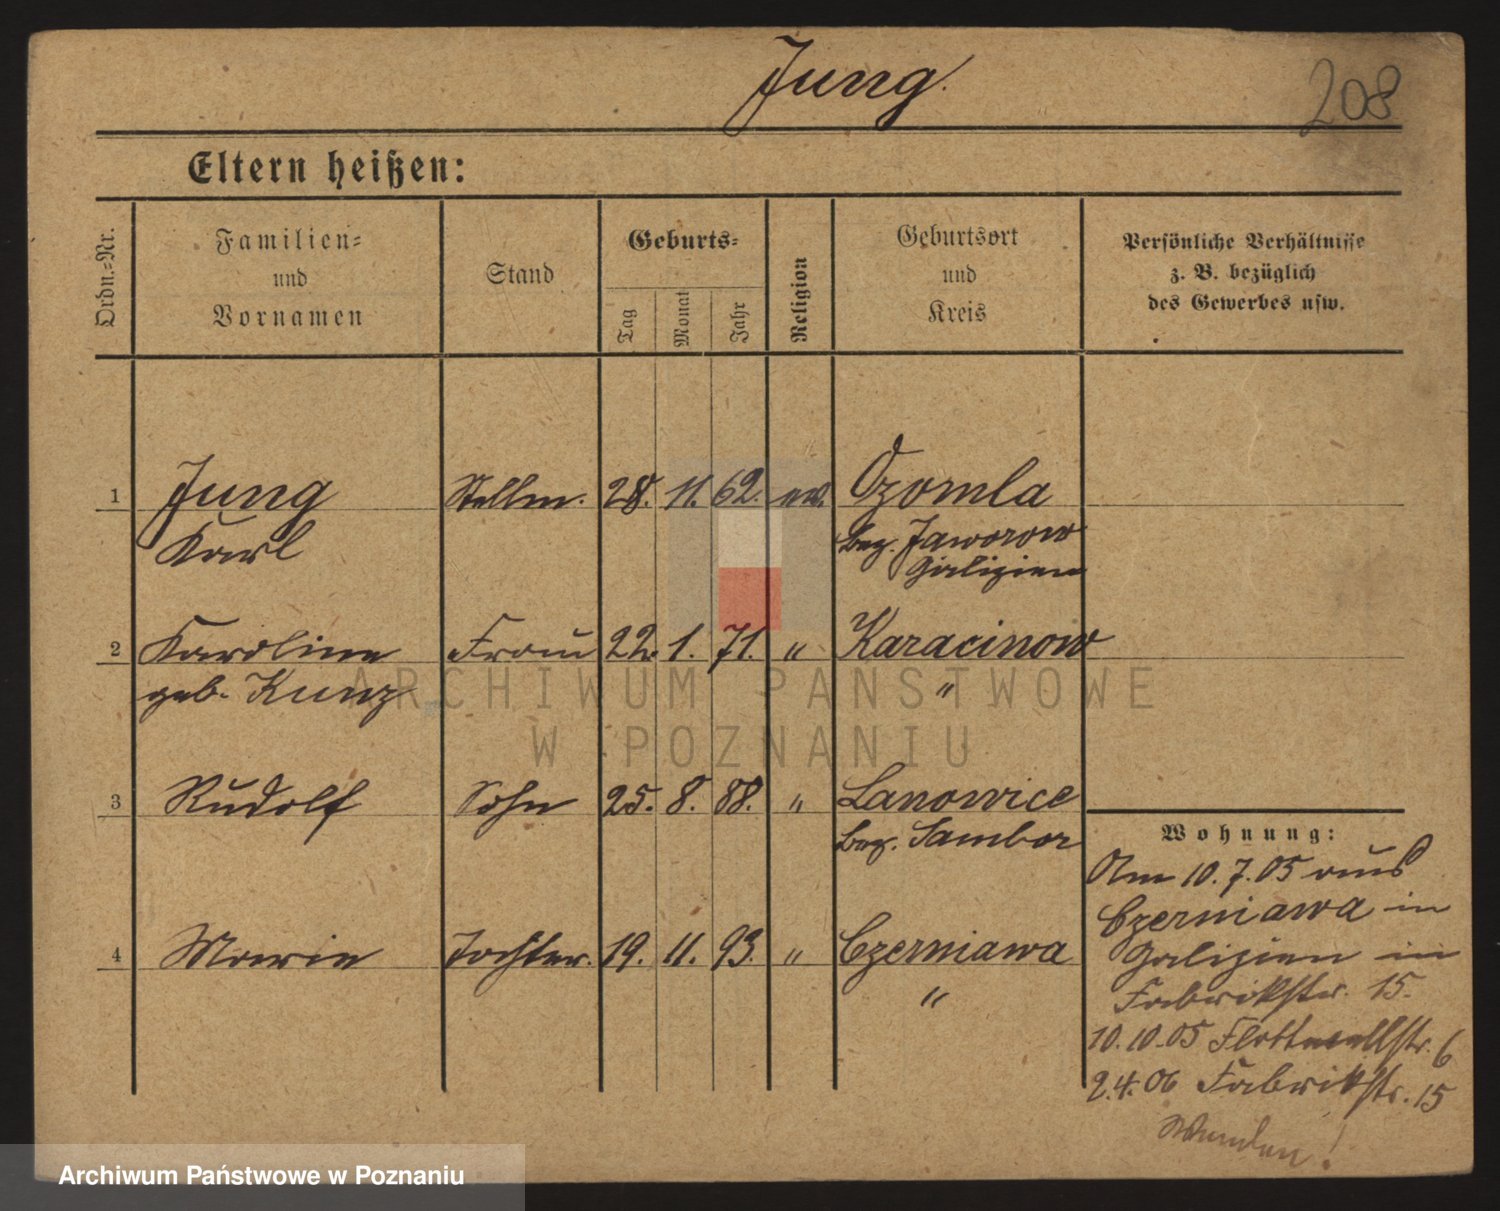 Jung.
208
Eltern heißen:
Ordn.-Nr.
Familien-
und
Vornamen
Stand
Geburts-
Tag
Monat
Jahr
Religion
Geburtsort
und
Kreis
Persönliche Verhältnisse
z. B. bezüglich
des Gewerbes usw.
1 Jung Stellm. 28. 11. 62. ev. Ozomla
Karl bez. Jaworow
Galizien
2 Karoline Frau 22. 1. 71. " Karacinow
geb. Kunz "
3 Rudolf Sohn 25. 8. 88. " Lanowice
bez. Sambor
4 Marie Tochter. 19. 11. 93. " Czerniawa
"
Wohnung:
Am 10.7.05 aus
Czerniawa in
Galizien in
Fabrikstr. 15.
10.10.05 Flottwellstr. 6
2.4.06 Fabrikstr. 15
ARCHIWUM PAŃSTWOWE
W POZNANIU
Archiwum Państwowe w Poznaniu